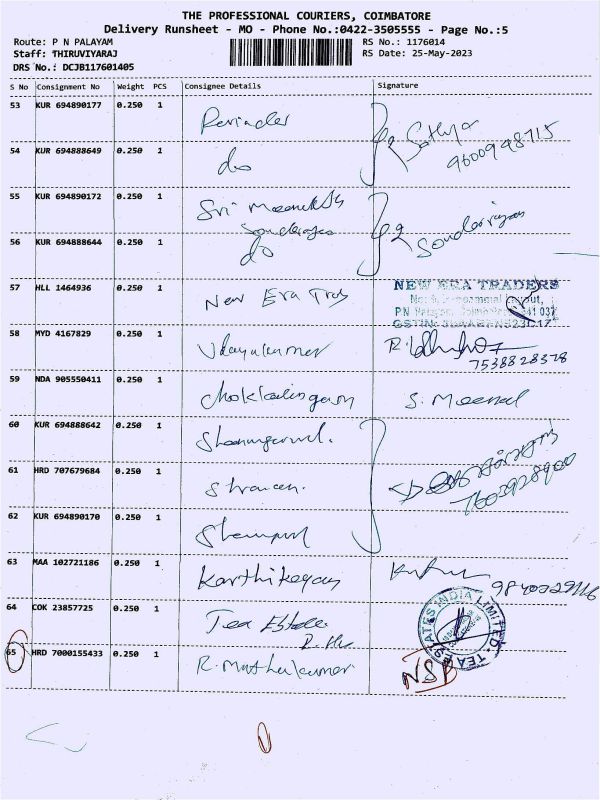 THE PROFESSIONAL COURIERS, COIMBATORE
Delivery Runsheet - MO - Phone No.:0422-3505555 - Page No.:5
Route: P N PALAYAM RS No.: 1176014
Staff: THIRUVIYARAJ RS Date: 25-May-2023
DRS No.: DCJB117601405
S No Consignment No Weight PCS Consignee Details Signature
53 KUR 694890177 0.250 1 Ravinder
Sathya
9600948715
54 KUR 694888649 0.250 1 do
55 KUR 694890172 0.250 1 Sri
56 KUR 694888644 0.250 1 do
57 HLL 1464936 0.250 1 New Era NEW ERA TRADERS
58 MYD 4167829 0.250 1 Udayakumar
7538828378
59 NDA 905550411 0.250 1 S. Meenal
60 KUR 694888642 0.250 1
61 HRD 707679684 0.250 1
62 KUR 694890170 0.250 1
63 MAA 102721186 0.250 1 Karthikeyan
64 COK 23857725 0.250 1 Tea Estates TEA ESTATES INDIA LIMITED
65 HRD 7000155433 0.250 1 R. Muthukumar NSP